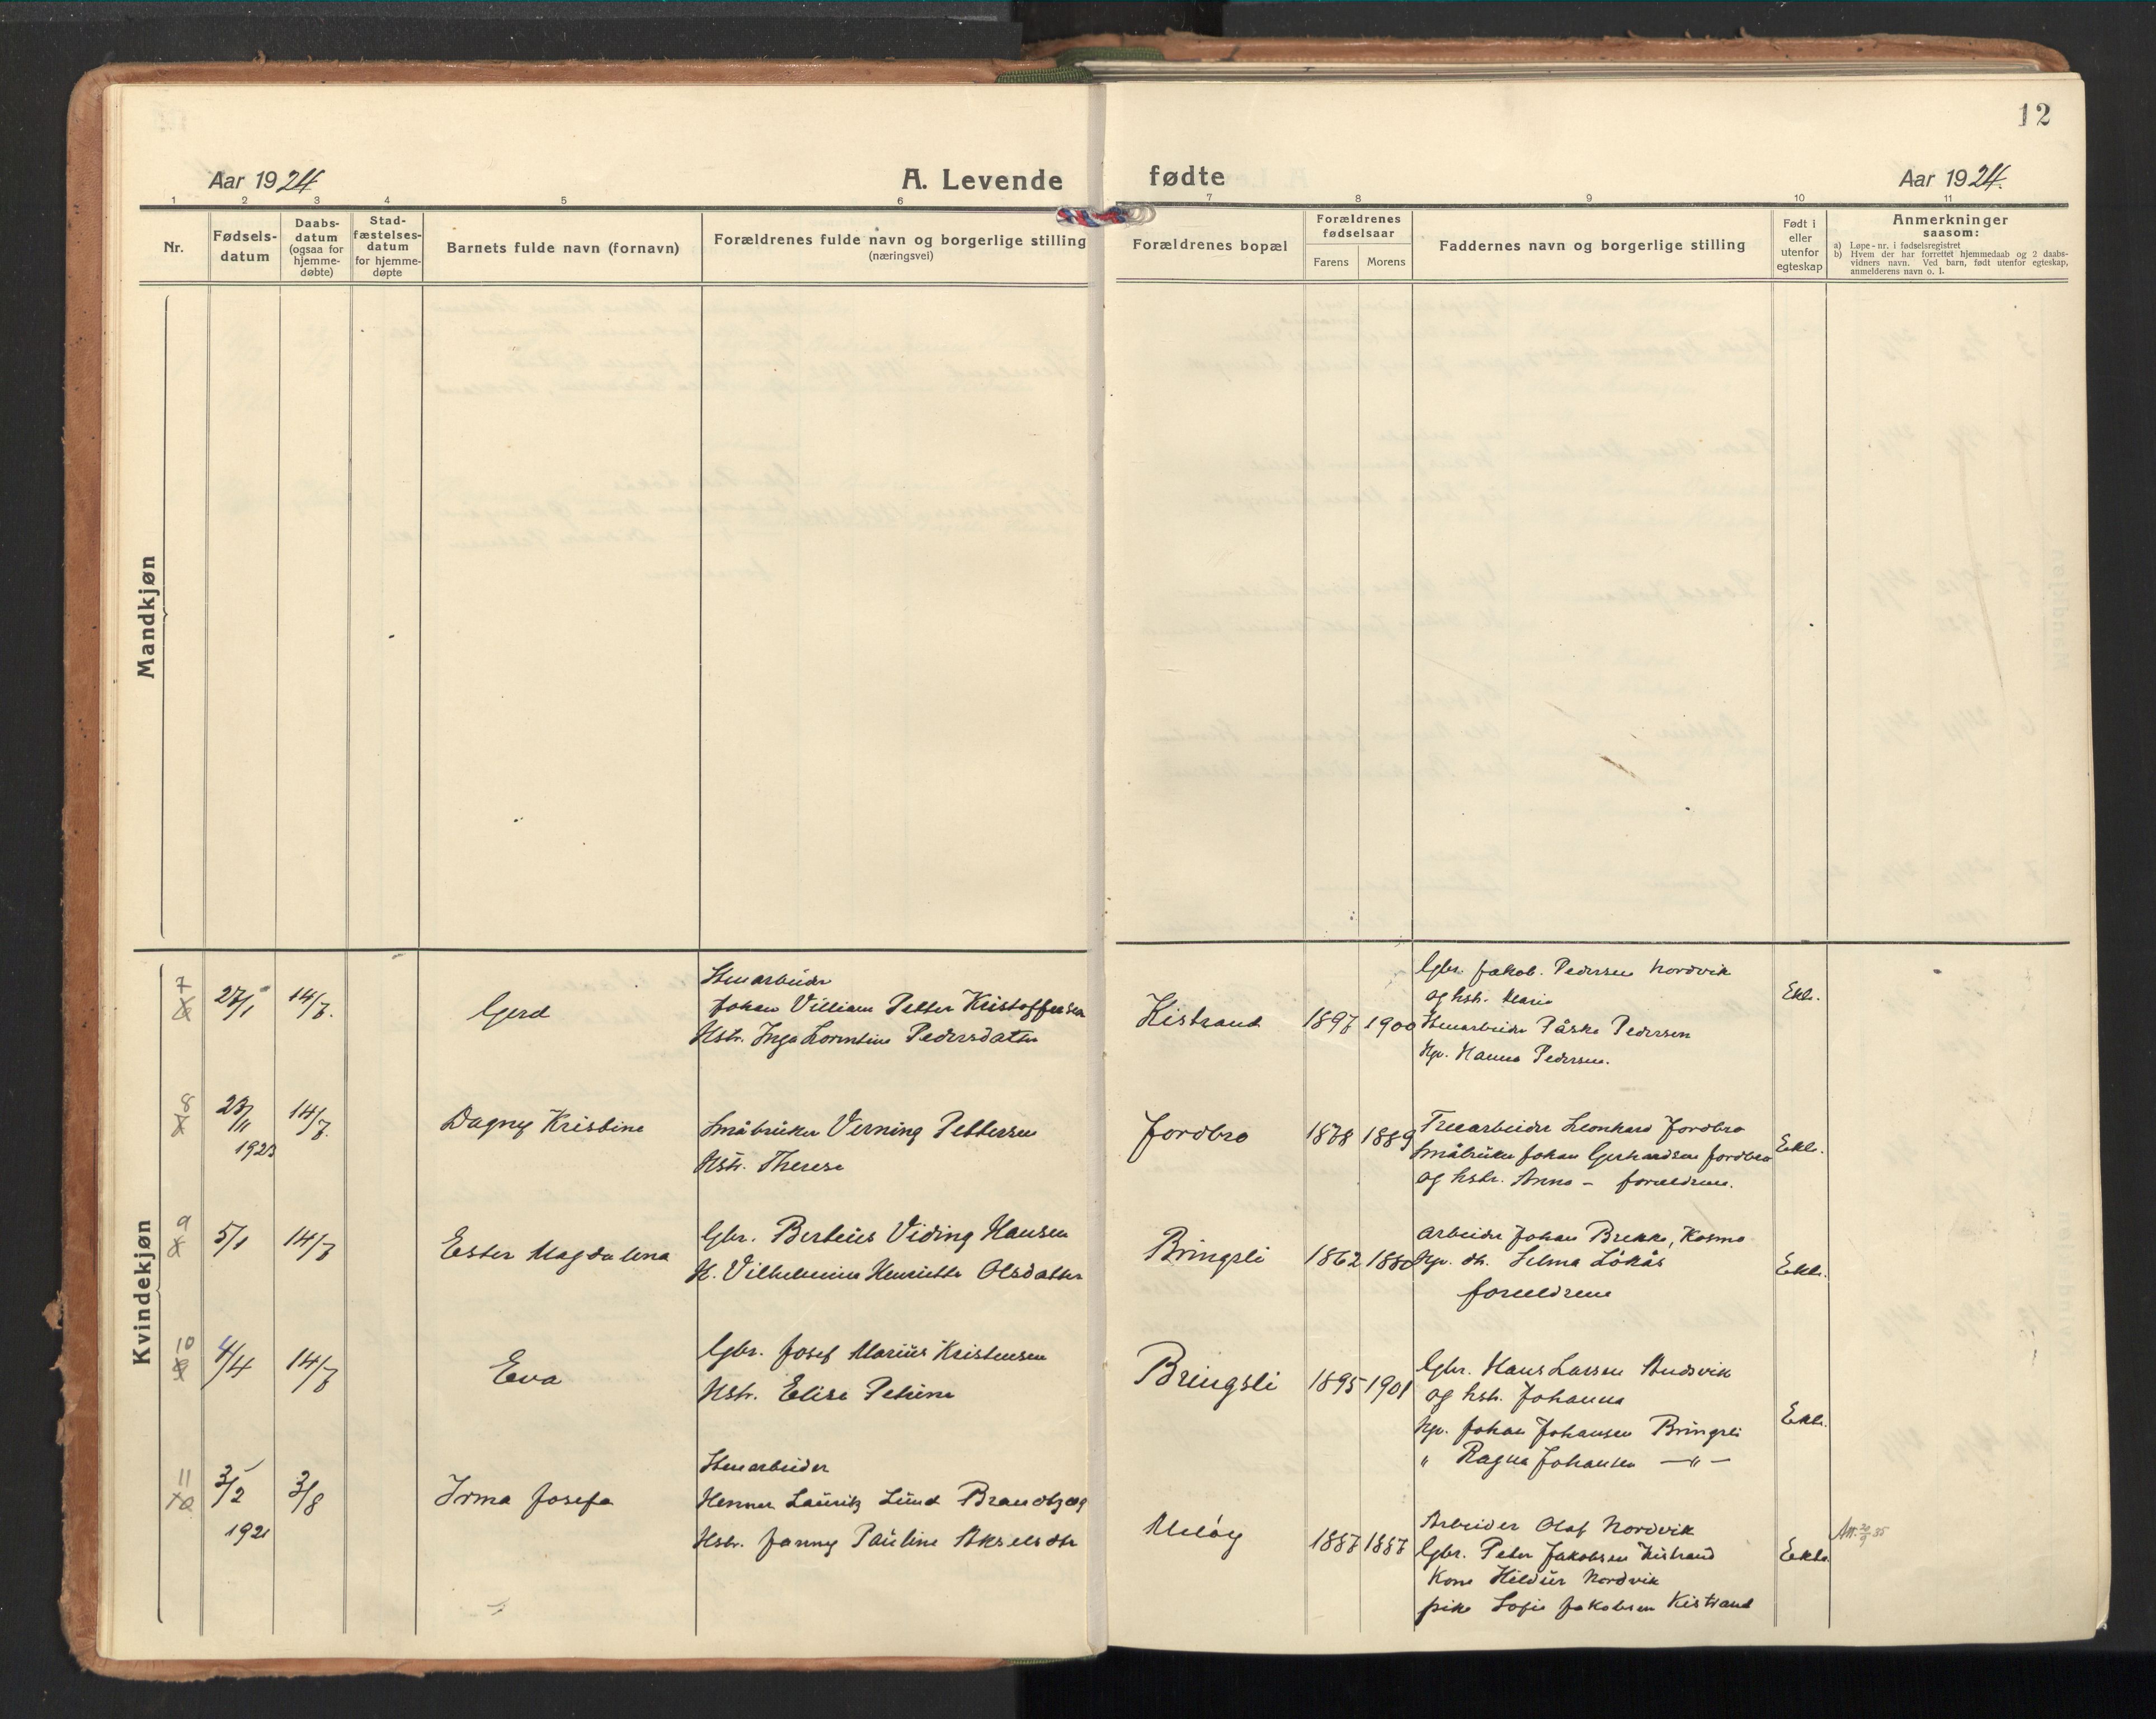 12
Aar 1924
A. Levende
fødte
Aar 1924.
1 2 3 4 5 6 7 8 9 10 11
Nr.
Fødsels-
datum
Daabs-
datum
(ogsaa for
hjemme-
døbte)
Stad-
fæstelses-
datum
for hjemme-
døpte
Barnets fulde navn (fornavn)
Forældrenes fulde navn og borgerlige stilling
(næringsvei)
Forældrenes bopæl
Forældrenes
fødselsaar
Farens Morens
Faddernes navn og borgerlige stilling
Født i
eller
utenfor
egteskap
Anmerkninger
saasom:
a) Løpe-nr. i fødselsregistret
b) Hvem der har forrettet hjemmedaab og 2 daabs-
vidners navn. Ved barn, født utenfor egteskap,
anmelderens navn o. l.
Mandkjøn
Kvindekjøn
7
27/1 14/7.
Gerd
Stenarbeider
Johan Villiam Petter Kristoffersen
Hstr. Inga Lorentine Pedersdatter
Kistrand
1897 1900
Gbr. Jakob. Pedersen Nordvik
og hstr. Marie
Stenarbeider Påske Pedersen
Up. Hanna Pedersen.
Ekte.
8
23/11 14/7.
1923
Dagny Kristine
Småbruker Verning Pettersen
Hstr. Therese
Jordbro
1878 1889
Trearbeider Leonhard Jordbro
Småbruker Johan Gerhardsen Jordbro
og hstr. Anna - foreldrene.
Ekte.
9
5/1 14/7
Ester Magdalena
Gbr. Berteus Viding Hansen
H. Vilhelmine Henriette Olsdatter
Bringsli
1862 1880
Arbeider Johan Brekke, Kosmo
Up. dtr. Selma Løkås
foreldrene
Ekte.
10
4/4 14/7
Eva
Gbr. Josef Marius Kristensen
Hstr. Elise Petrine
Bringsli
1895 1901
Gbr. Hans Larsen
og hstr. Johanna
Up. Johan Johansen Bringsli
" Ragna Johansen —"—
Ekte.
11
3/2 3/8
1921
Irma Josefa
Stenarbeider
Henner Lauritz Lund Brandtzæg
Hstr. Fanny Pauline Akselsdtr
Meløy
1887 1887
Arbeider Olaf Nordvik
Gbr. Peter Jakobsen Kistrand
Kone Hildur Nordvik
pike Sofie Jakobsen Kistrand
Ekte